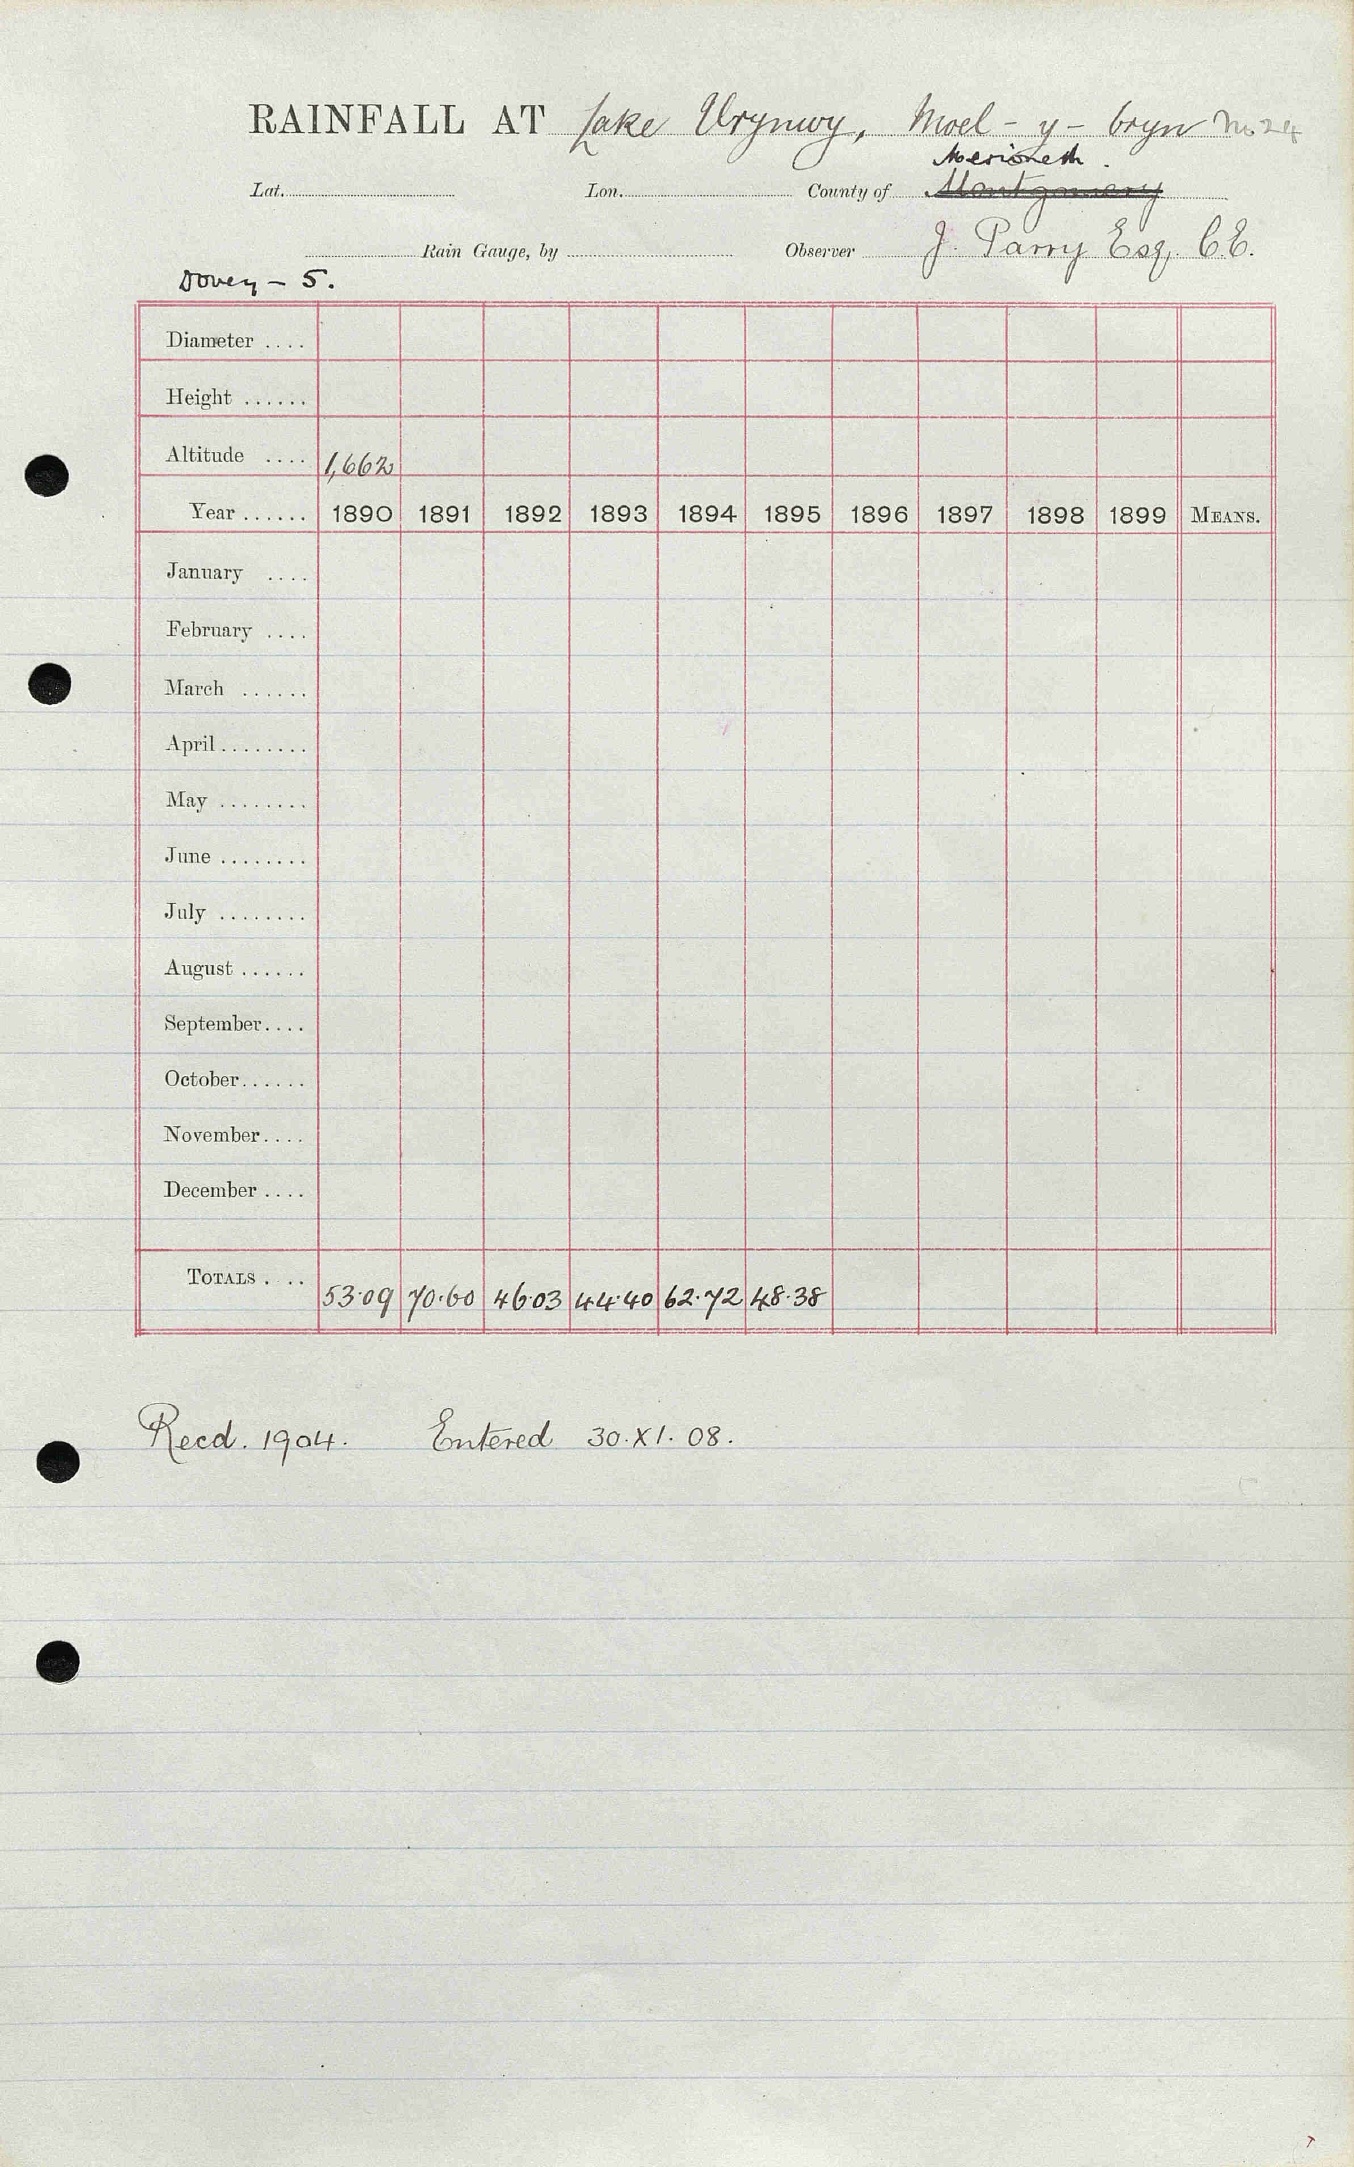 RAINFALL AT Lake Vrynwy, Moel-y-bryn No 24
Merioneth.
Lat. Lon. County of Montgomery
Rain Gauge, by Observer J. Parry Esq. C.E.
Dovey - 5.
Diameter ....
Height ......
Altitude .... 1,662
Year ...... 1890 1891 1892 1893 1894 1895 1896 1897 1898 1899 MEANS.
January ....
February ....
March ......
April ........
May ........
June ........
July ........
August ......
September....
October......
November....
December ....
TOTALS . .. 53.09 70.60 46.03 44.40 62.72 48.38
Recd. 1904. Entered 30.XI.08.